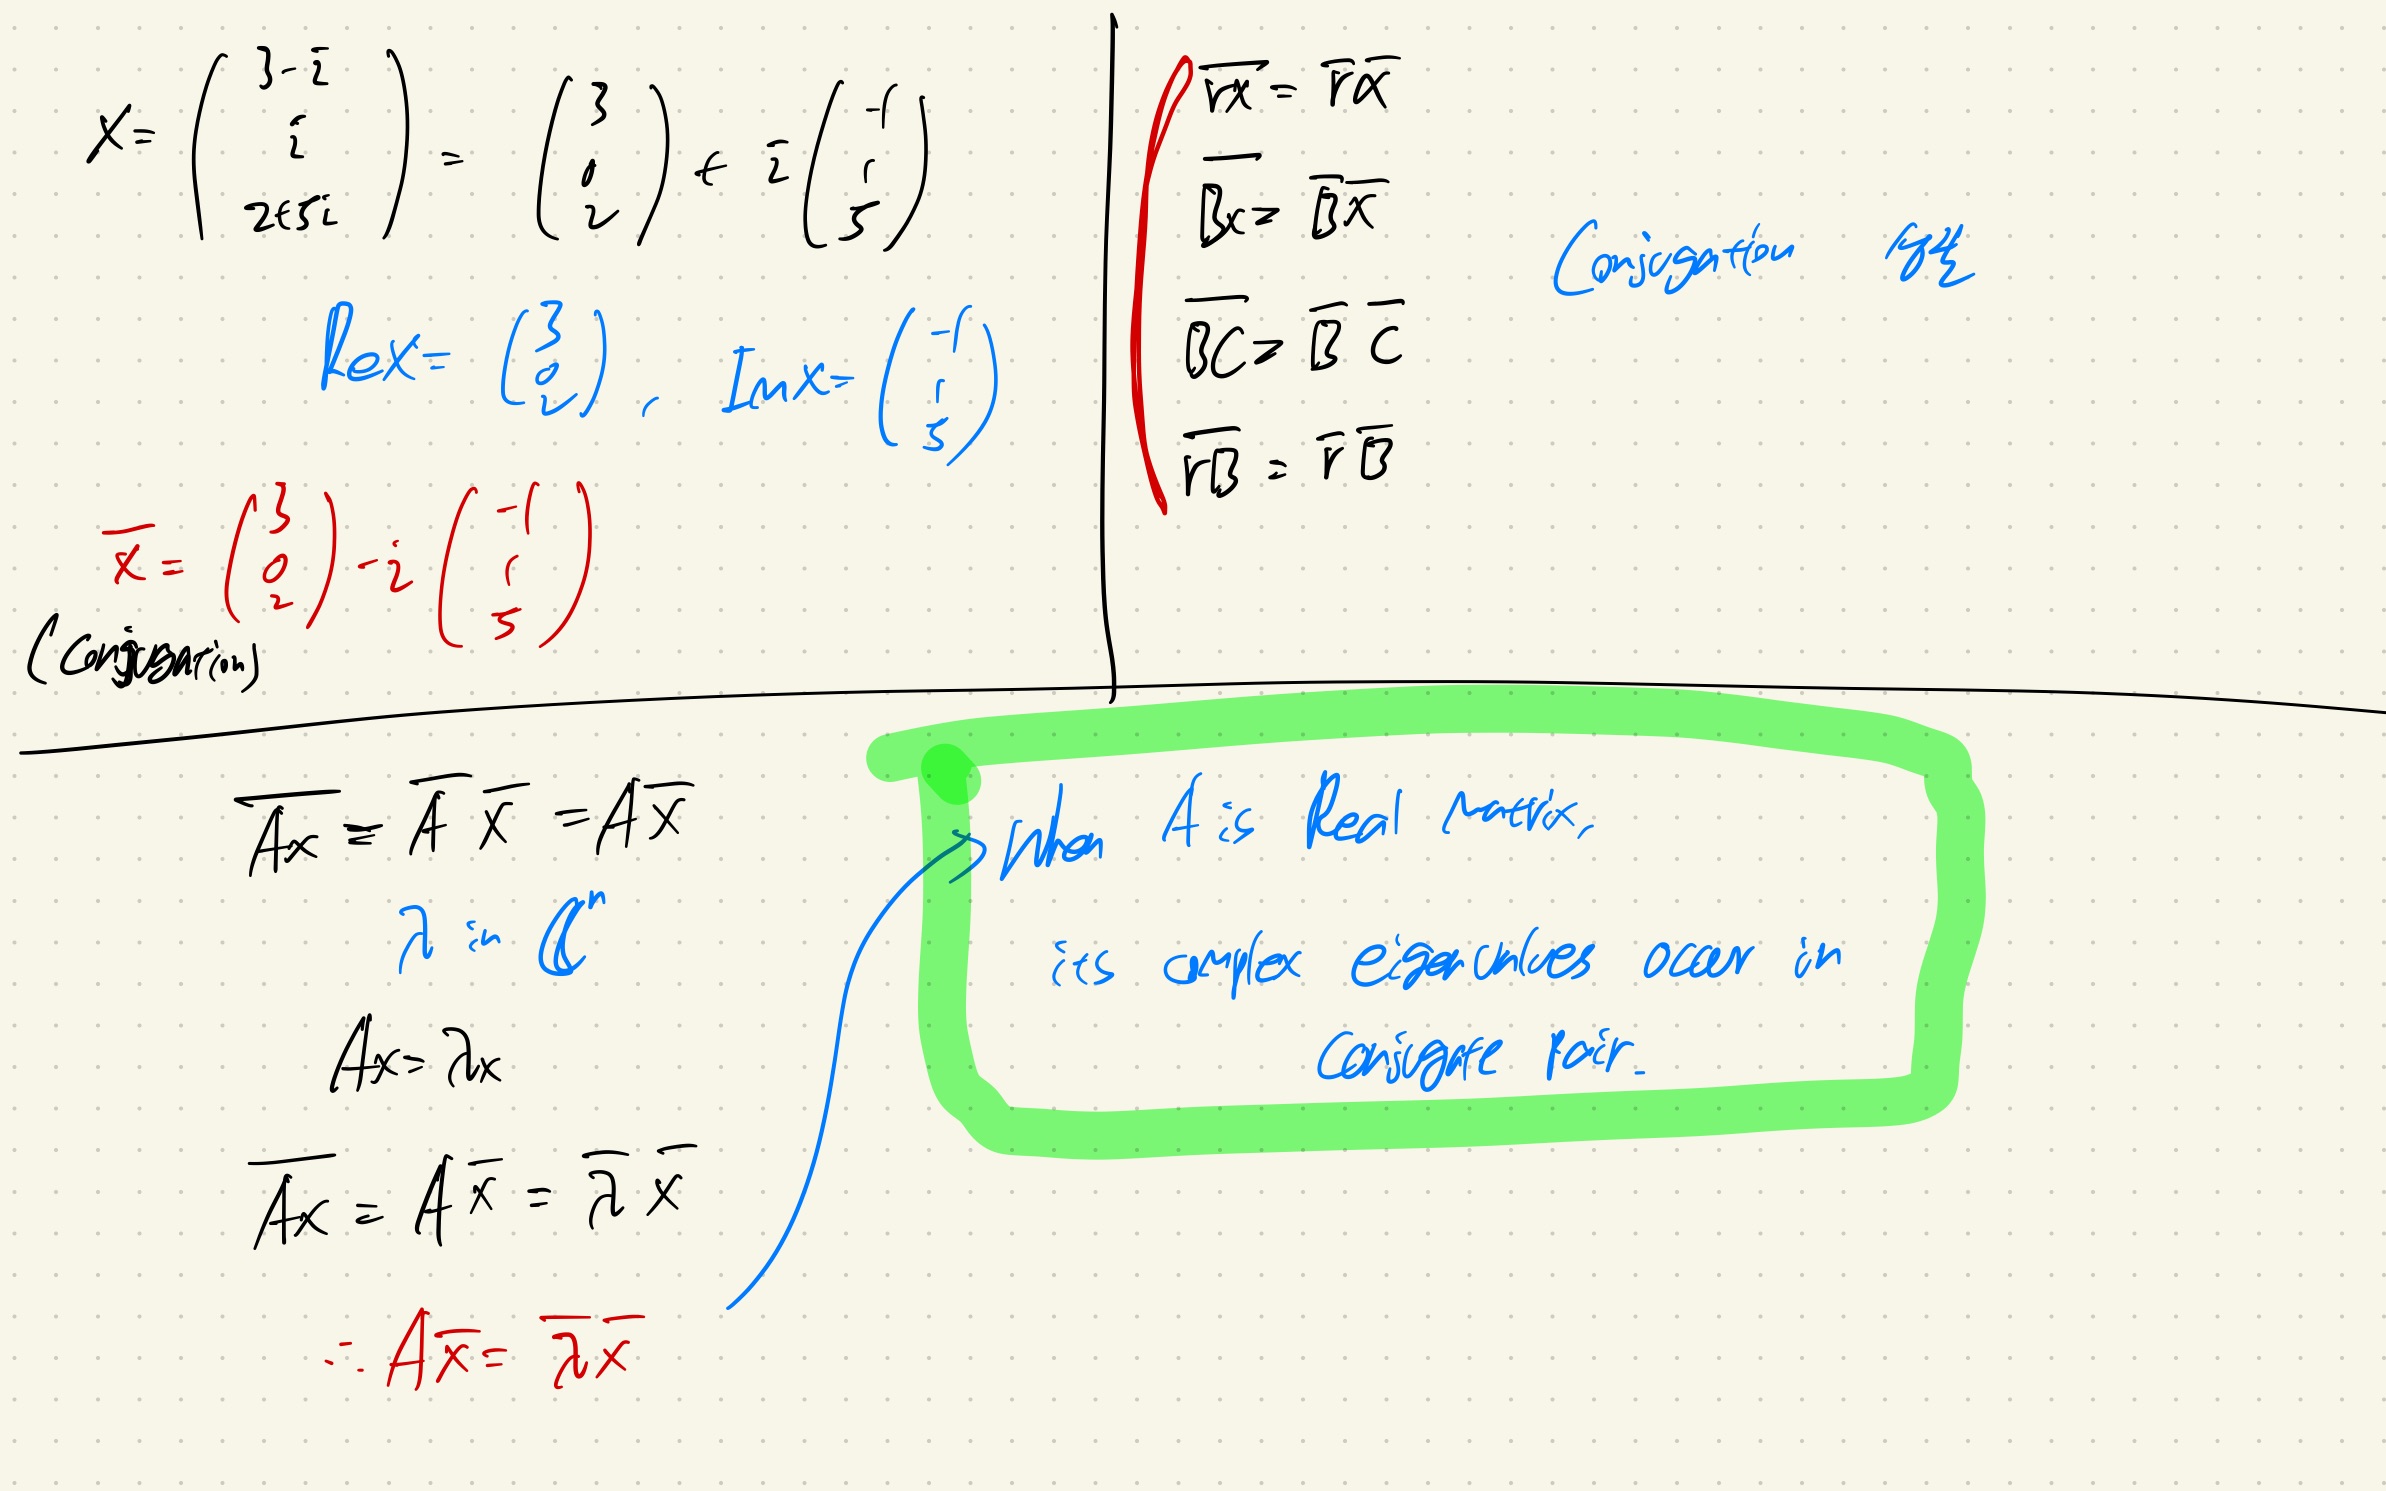 x = (3-i, i, 2+5i) = (3, 0, 2) + i (-1, 1, 5)
Re x = (3, 0, 2), Im x = (-1, 1, 5)
x̅ = (3, 0, 2) - i (-1, 1, 5)
(Conjugation)
r̅x̅ = r̅ x̅
B̅x̅ = B̅ x̅
B̅C̅ = B̅ C̅
r̅B̅ = r̅ B̅
Conjugation
A̅x̅ = A̅ x̅ = A x̅
λ in ℂⁿ
Ax = λx
A̅x̅ = A x̅ = λ̅ x̅
∴ A x̅ = λ̅ x̅
When A is Real matrix,
its complex eigenvalues occur in
Conjugate Pair.